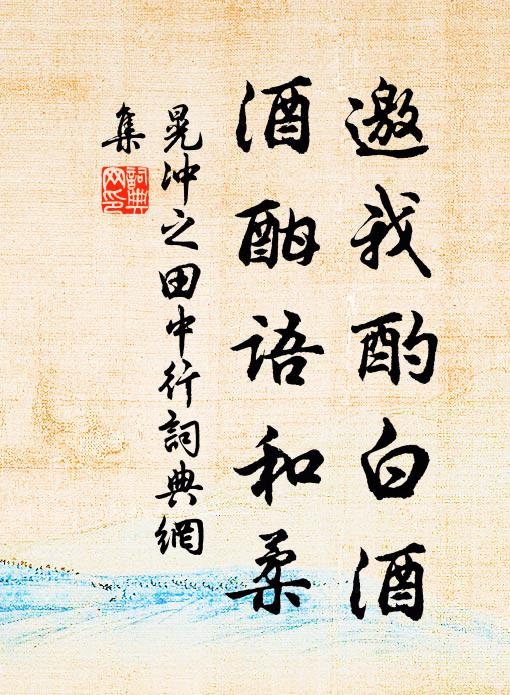 邀我酌白酒
酒酣語和柔
晁沖之田中行詞典網
集
詞典
网印